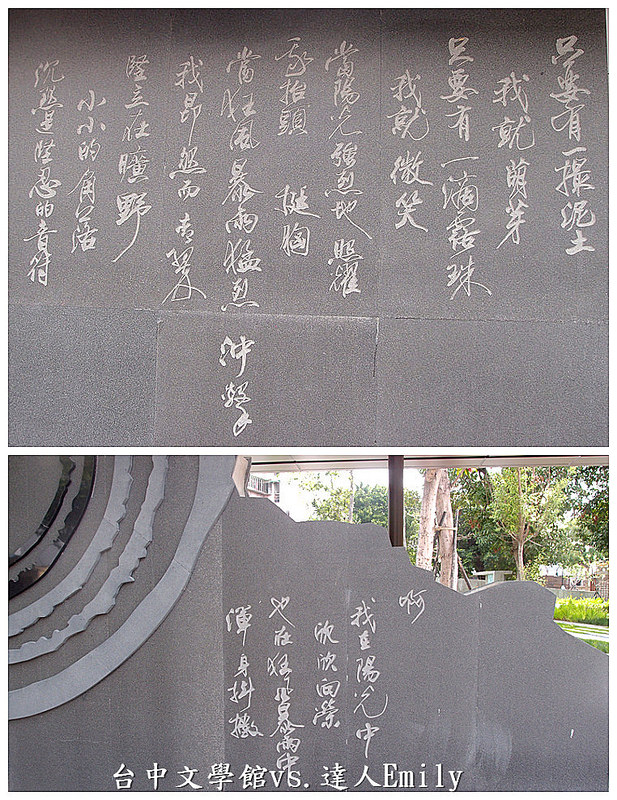 只要有一撮泥土
我就萌芽
只要有一滴露珠
我就微笑
當陽光強烈地 照耀
我抬頭 挺胸
當狂風暴雨猛烈 沖擊
我昂然而青翠
堅立在曠野
小小的角落
沉默是堅忍的音符
啊
我在陽光中
欣欣向榮
也在狂風暴雨中
渾身抖擻
台中文學館vs.達人Emily